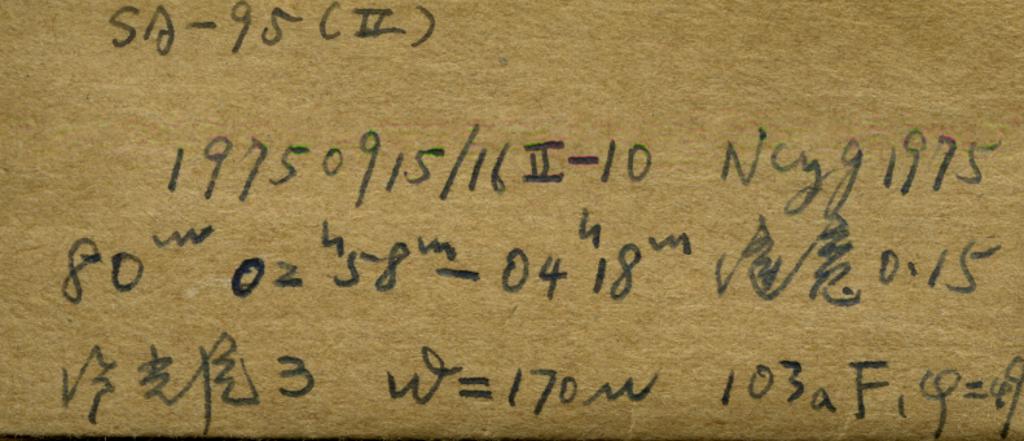 SA-95(Ⅱ)
19750915/16 Ⅱ-10 Ncyg 1975
80ᵐ 02ʰ58ᵐ-04ʰ18ᵐ 0.15
3 W=170μ 103aF, φ=